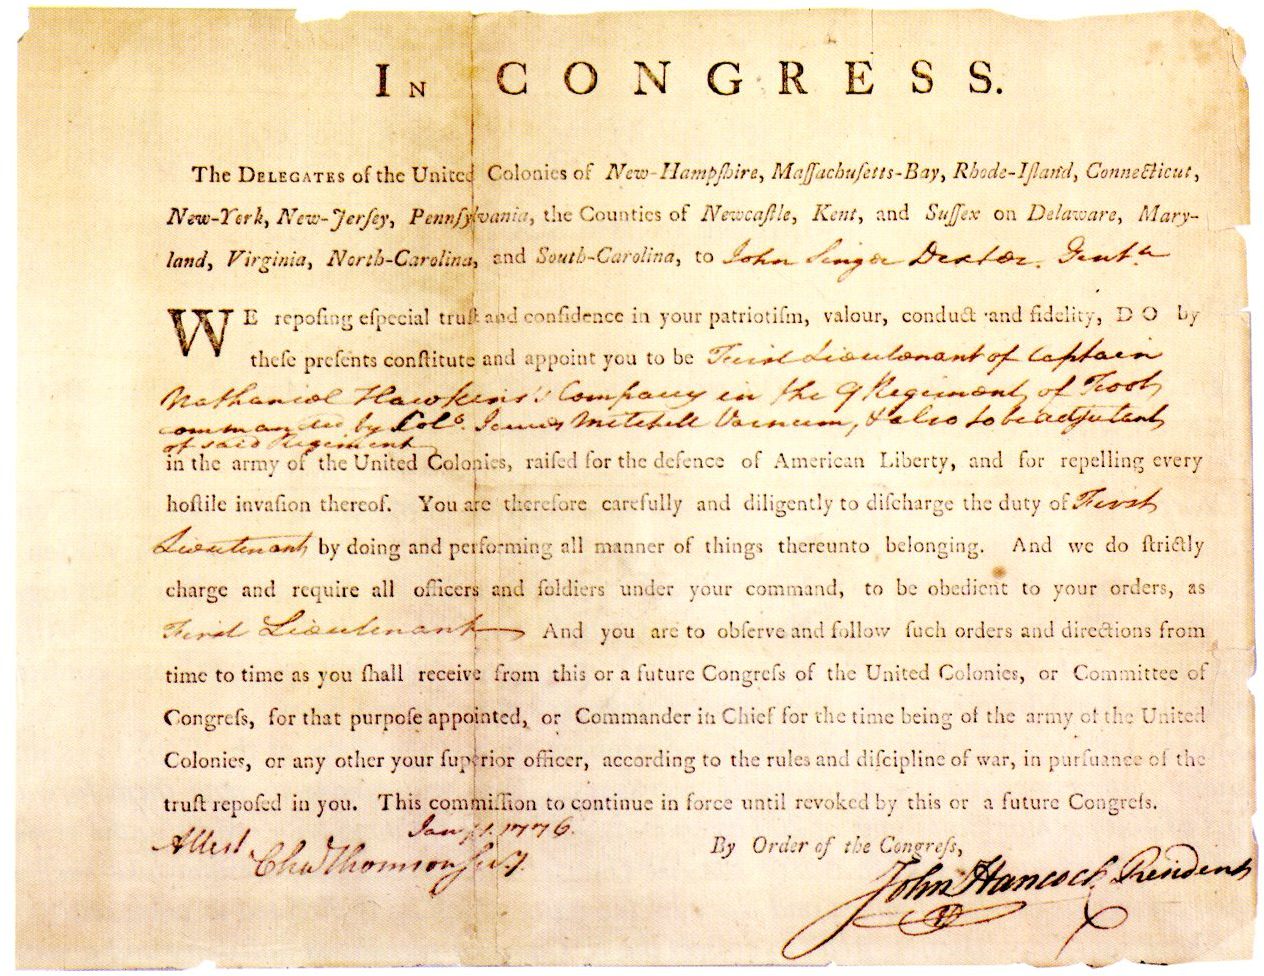 IN CONGRESS.
The DELEGATES of the United Colonies of New-Hampſhire, Maſſachuſetts-Bay, Rhode-Iſland, Connecticut,
New-York, New-Jerſey, Pennſylvania, the Counties of Newcaſtle, Kent, and Suſſex on Delaware, Mary-
land, Virginia, North-Carolina, and South-Carolina, to John Singer Dexter. Gent.n
WE repoſing eſpecial truſt and confidence in your patriotiſm, valour, conduct and fidelity, DO by
theſe preſents conſtitute and appoint you to be First Lieutenant of Captain
Nathaniel Hawkins's Company in the 9 Regiment of Foot
commanded by Colo. James Mitchell Varnum, & also to be adjutant
of said Regiment
in the army of the United Colonies, raiſed for the defence of American Liberty, and for repelling every
hoſtile invaſion thereof. You are therefore carefully and diligently to diſcharge the duty of First
Lieutenant by doing and performing all manner of things thereunto belonging. And we do ſtrictly
charge and require all officers and ſoldiers under your command, to be obedient to your orders, as
First Lieutenant And you are to obſerve and follow ſuch orders and directions from
time to time as you ſhall receive from this or a future Congreſs of the United Colonies, or Committee of
Congreſs, for that purpoſe appointed, or Commander in Chief for the time being of the army of the United
Colonies, or any other your ſuperior officer, according to the rules and diſcipline of war, in purſuance of the
truſt repoſed in you. This commiſſion to continue in force until revoked by this or a future Congreſs.
Jany 1. 1776.
Attest Chas Thomson Secy.
By Order of the Congreſs,
John Hancock President